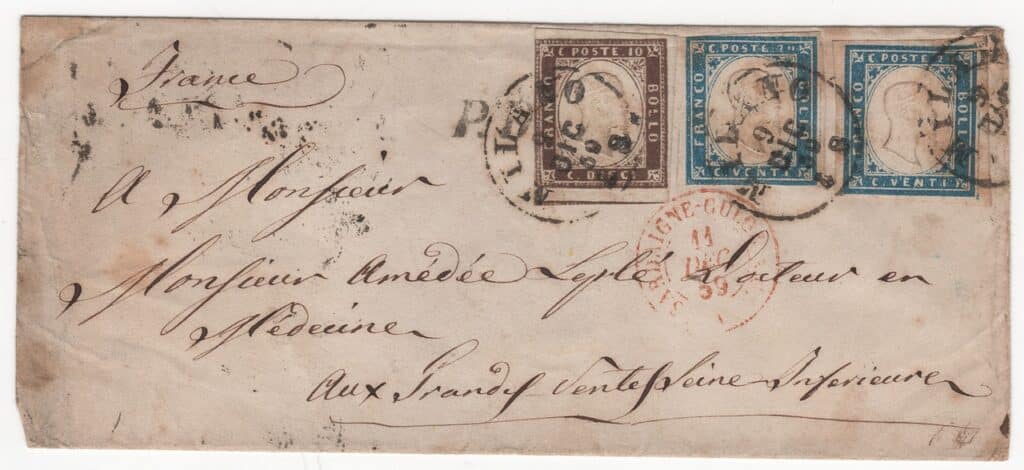 France
C. POSTE 10
FRANCO
BOLLO
C. DIECI
C. POSTE 20
FRANCO
BOLLO
C. VENTI
C. POSTE 2
FRANCO
BOLL
C. VENTI
MILANO
9
DIC
59
MILANO
9
DIC
8
SARDAIGNE-CULOZ
11
DEC
59
A Monsieur
Monsieur Amédée Leplé Docteur en
Médecine
Aux Grandes Ventes Seine Inferieure